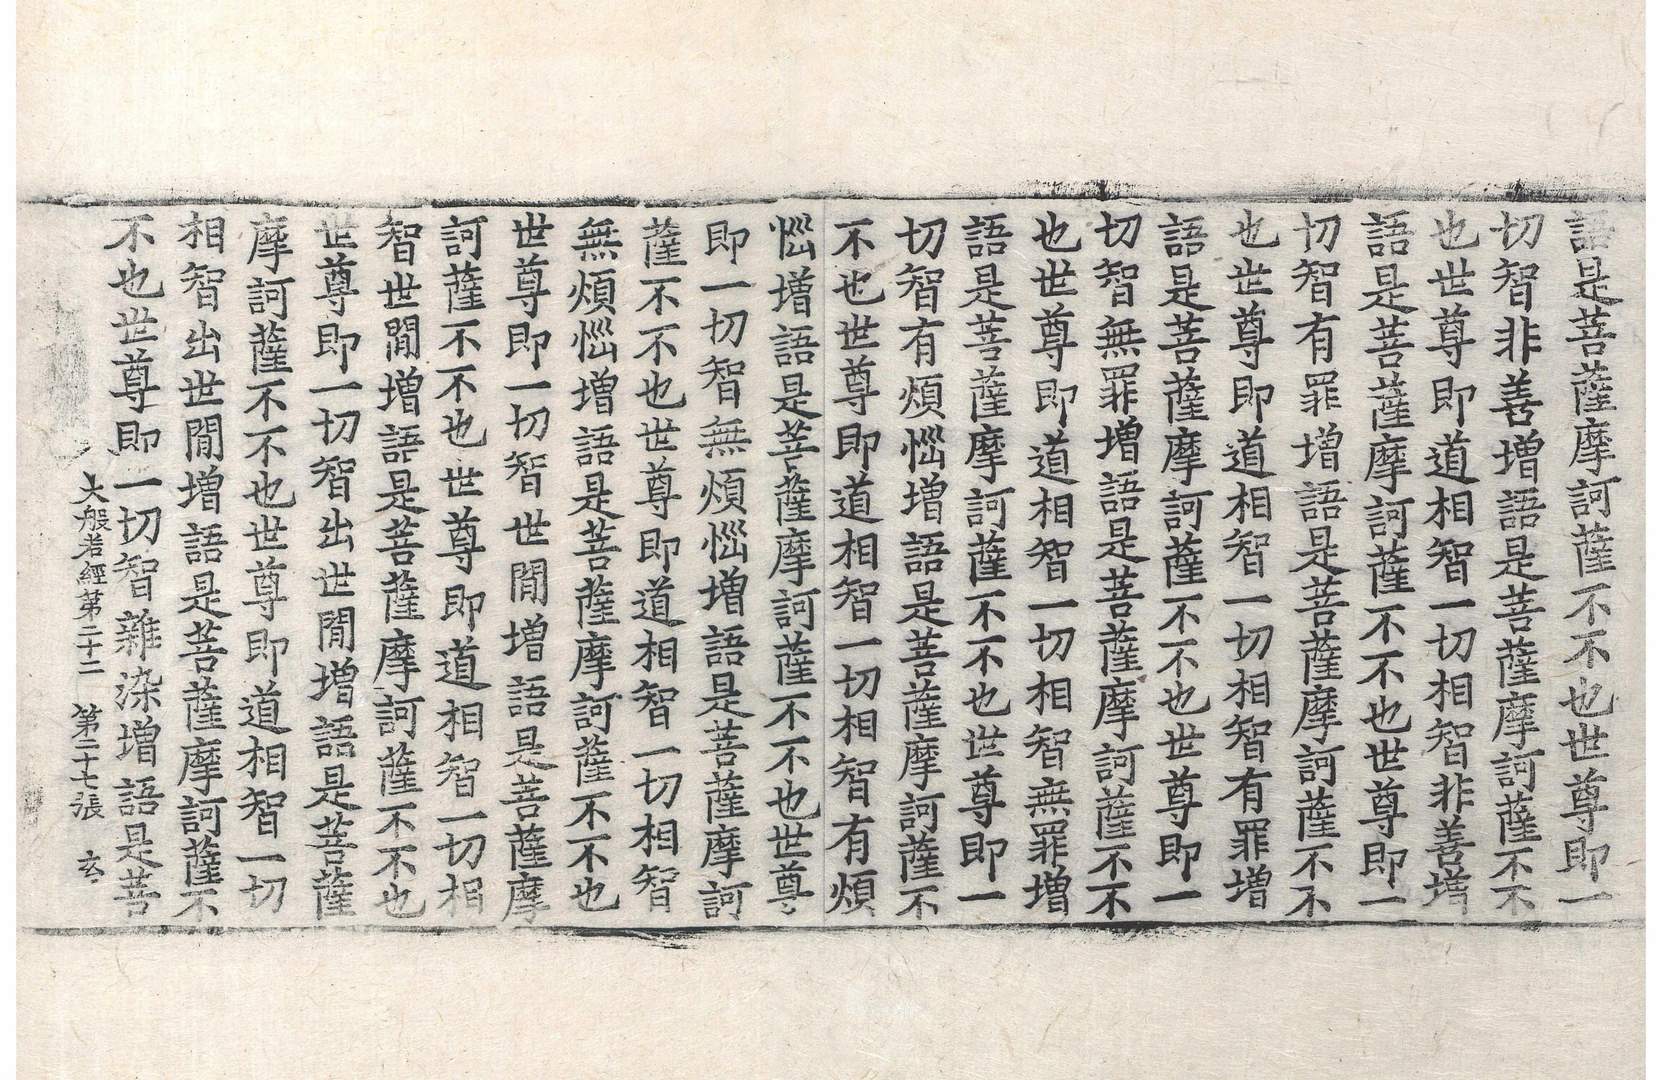 語是菩薩摩訶薩不不也世尊即一
切智非善增語是菩薩摩訶薩不不
也世尊即道相智一切相智非善增
語是菩薩摩訶薩不不也世尊即一
切智有罪增語是菩薩摩訶薩不不
也世尊即道相智一切相智有罪增
語是菩薩摩訶薩不不也世尊即一
切智無罪增語是菩薩摩訶薩不不
也世尊即道相智一切相智無罪增
語是菩薩摩訶薩不不也世尊即一
切智有煩惱增語是菩薩摩訶薩不
不也世尊即道相智一切相智有煩
惱增語是菩薩摩訶薩不不也世尊
即一切智無煩惱增語是菩薩摩訶
薩不不也世尊即道相智一切相智
無煩惱增語是菩薩摩訶薩不不也
世尊即一切智世閒增語是菩薩摩
訶薩不不也世尊即道相智一切相
智世閒增語是菩薩摩訶薩不不也
世尊即一切智出世閒增語是菩薩
摩訶薩不不也世尊即道相智一切
相智出世閒增語是菩薩摩訶薩不
不也世尊即一切智雜染增語是菩
大般若經第二十二 第二十七張 玄